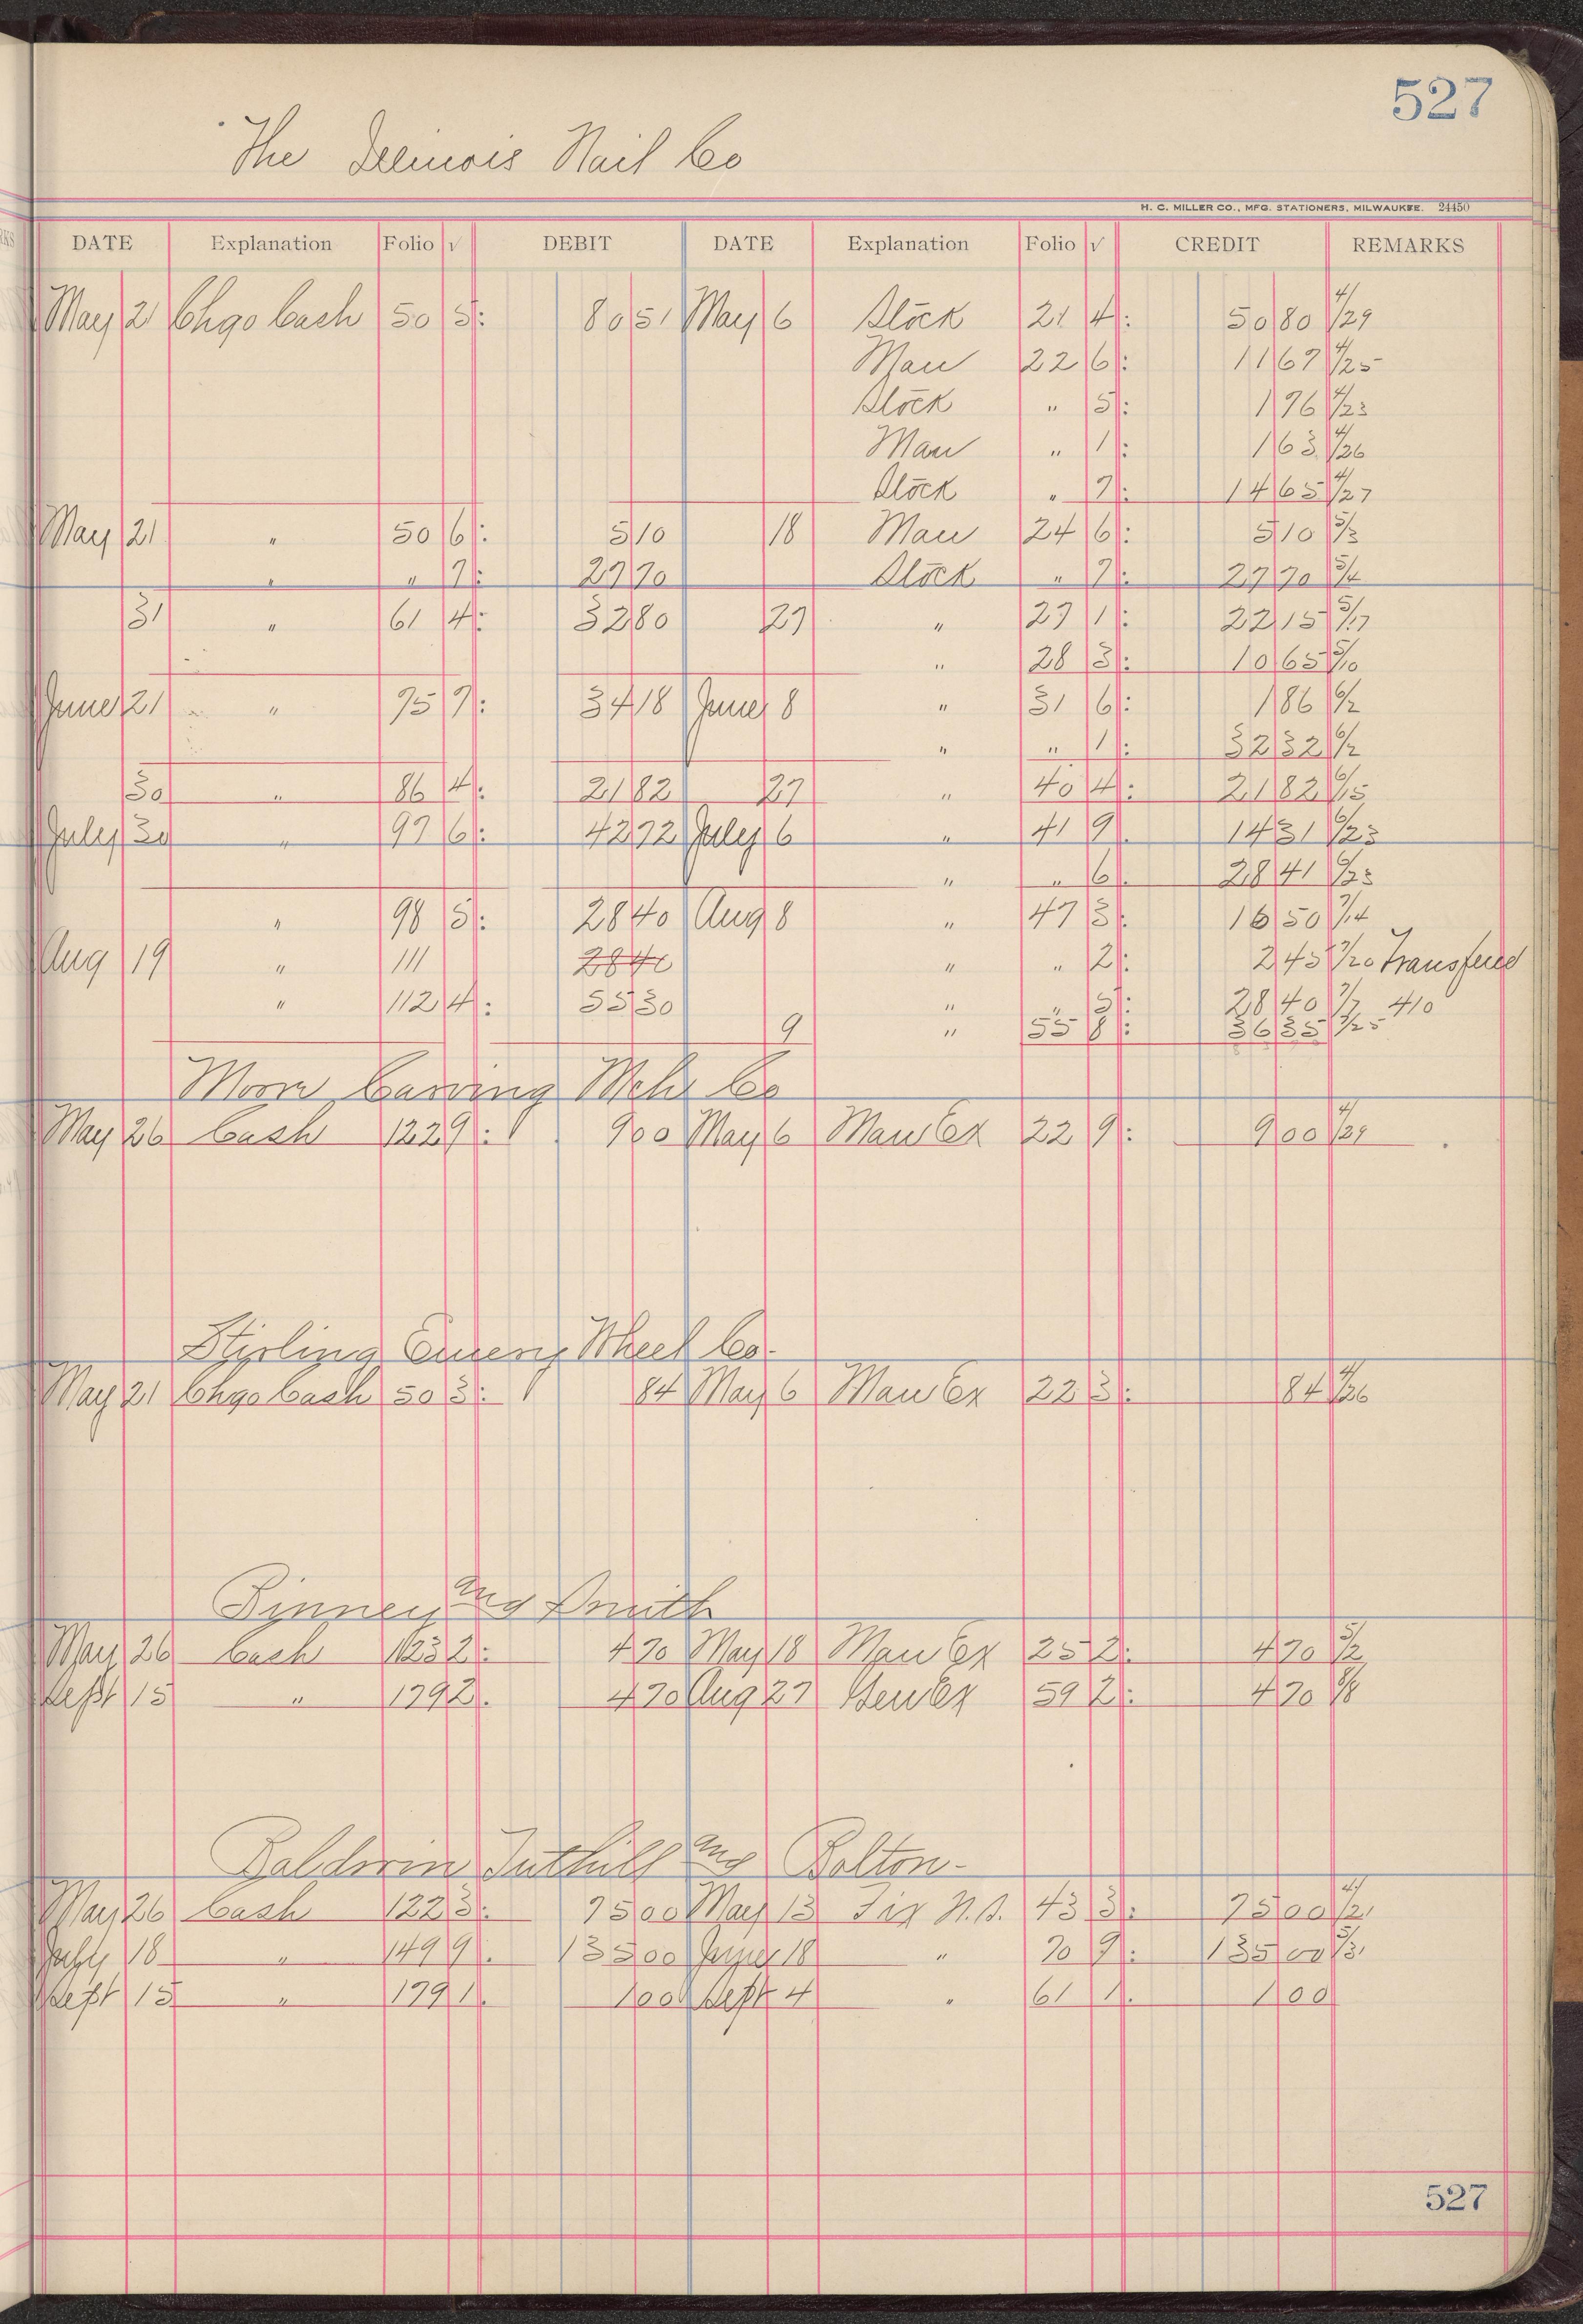 527
The Illinois Nail Co
H. C. MILLER CO., MFG. STATIONERS, MILWAUKEE. 24450
DATE Explanation Folio √ DEBIT DATE Explanation Folio √ CREDIT REMARKS
May 21 Chgo Cash 50 5: 80 51 May 6 Stock 21 4: 50 80 4/29
Man 22 6: 11 67 4/25
Stock " 5: 1 76 4/23
Man " 1: 1 63 4/26
Stock " 7: 14 65 4/27
May 21 " 50 6: 5 10 18 Man 24 6: 5 10 5/3
" " 7: 27 70 Stock " 7: 27 70 5/4
31 " 61 4: 32 80 27 " 27 1: 22 15 5/17
" 28 3: 10 65 5/10
June 21 " 75 7: 34 18 June 8 " 31 6: 1 86 6/2
" " 1: 32 32 6/2
30 " 86 4: 21 82 27 " 40 4: 21 82 6/15
July 30 " 97 6: 42 72 July 6 " 41 9 14 31 6/23
" " 6 28 41 6/23
" 98 5: 28 40 Aug 8 " 47 3: 16 50 7/14
Aug 19 " 111 28 40 " " 2: 2 45 7/20 Transfered
" 112 4: 55 30 " " 5: 28 40 7/7 410
9 " 55 8: 36 35 7/25
Moore Carving Mch Co
May 26 Cash 122 9: 9 00 May 6 Man Ex 22 9: 9 00 4/29
Stirling Emery Wheel Co.
May 21 Chgo Cash 50 3: 84 May 6 Man Ex 22 3: 84 4/26
Binney and Smith
May 26 Cash 123 2: 4 70 May 18 Man Ex 25 2: 4 70 5/2
Sept 15 " 179 2. 4 70 Aug 27 Gen Ex 59 2: 4 70 8/8
Baldwin Tuthill and Bolton-
May 26 Cash 122 3: 75 00 May 13 Fix N.S. 43 3: 75 00 4/21
July 18 " 149 9. 135 00 June 18 " 70 9: 135 00 5/31
Sept 15 " 179 1. 1 00 Sept 4 " 61 1. 1 00
527